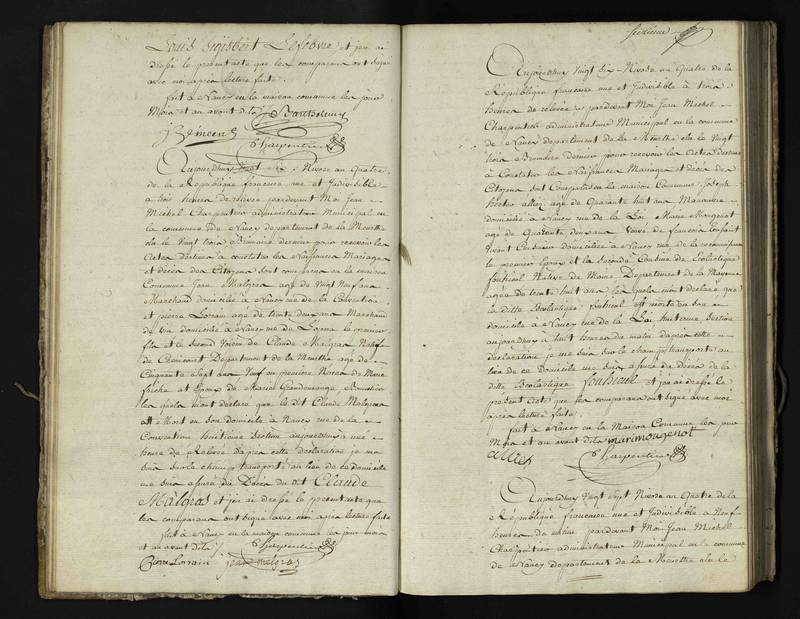 Louis Sigisbert Lefebvre et j'en ai
dressé le present acte que les comparans ont signé
avec moi après lecture faite.
fait à Nancy en la maison commune les jour
Mois et an avant dits J. Bartholemy
Charpentier
Aujourdhuy Vingt Six Nivose an Quatre
de la Republique francaise une et Indivisible
a trois heures de relevée pardevant Moi Jean
Michel Charpentier administrateur Municipal en
la commune de Nancy departement de la Meurthe
élu le Vingt trois Brumaire dernier pour recevoir les
Actes destinés à constater les Naissances Mariages
et décès des Citoyens sont comparus en la maison
Commune Jean Malgras age de Vingt Neuf ans
Marchand domicilié à Nancy rue de la Convention
et pierre Lorrain age de trente deux ans Marchand
de Vin domicilié à Nancy rue de le premier
fils et le Second Voisin de Claude Malgras Natif
de Departement de la Meurthe age de
Cinquante Sept ans Veuf en première Noces de Marie
et Epoux de Marie
les quels m'ont declaré que le dit Claude Malgras
est Mort en son domicile à Nancy rue de la
Convention huitieme Section aujourdhuy à une
heure de Relevée dapres cette declaration je me
suis sur le champ transporté au lieu de ce domicile
me suis assuré du Décès du dit Claude
Malgras et j'en ai dressé le present acte que
les comparans ont signé avec moi après lecture faite
fait à Nancy en la maison commune les jour mois
et an avant dits Charpentier
Pierre Lorrain jean malgras
Aujourdhuy Vingt Six Nivose an Quatre de la
Republique francaise une et Indivisible à trois
heures de relevée pardevant Moi Jean Michel
Charpentier administrateur Municipal en la commune
de Nancy departement de la Meurthe élu le Vingt
trois Brumaire dernier pour recevoir les Actes destinés
à Constater les Naissances Mariages et décès des
Citoyens sont Comparus en la maison Commune Joseph
age de Quarante huit ans
domicilié à Nancy rue de la Loi Marie Mougenot
age de Quarante deux ans Veuve de francois
Vivant domiciliée à Nancy rue de la
le premier Epoux et la Seconde Cousine de Scolastique
fouticul Native de Departement de la Mayenne
agée de trente huit ans les quels m'ont declaré que
la ditte Scolastique fouticul est morte en son
domicile à Nancy rue de la Loi huitieme Section
aujourdhuy à huit heures du matin dapres cette
declaration je me suis sur le champ transporté au
lieu de ce Domicile me suis assuré du décès de la
ditte Scolastique fouticul et j'en ai dressé le
present acte que les comparans ont signé avec moi
après lecture faite
fait à Nancy en la Maison Commune les jour
Mois et an avant dits marimougenot
Charpentier
Aujourdhuy Vingt Sept Nivose an Quatre de la
Republique francaise une et Indivisible à Neuf
heures du matin pardevant Moi Jean Michel
Charpentier administrateur Municipal en la commune
de Nancy departement de la Meurthe élu le